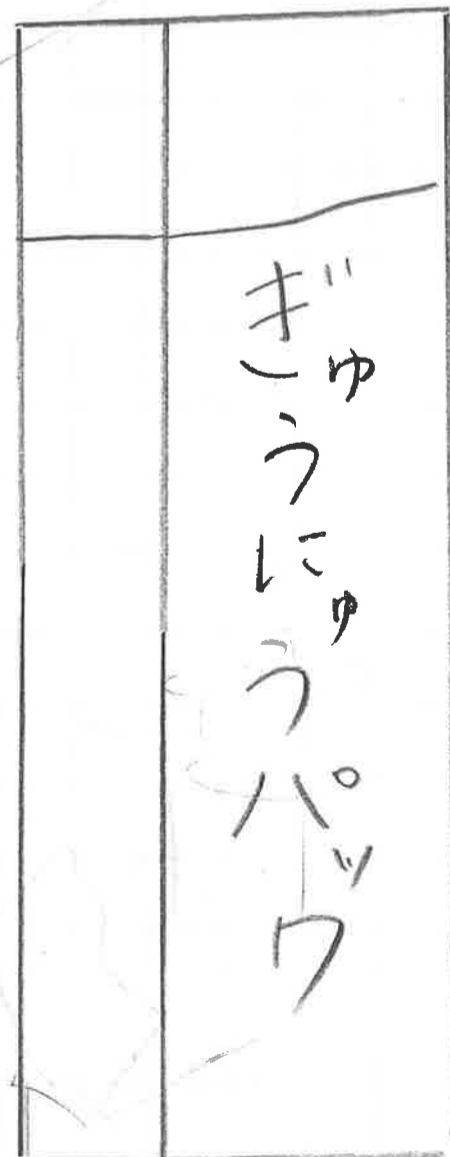 ぎゅうにゅうパック